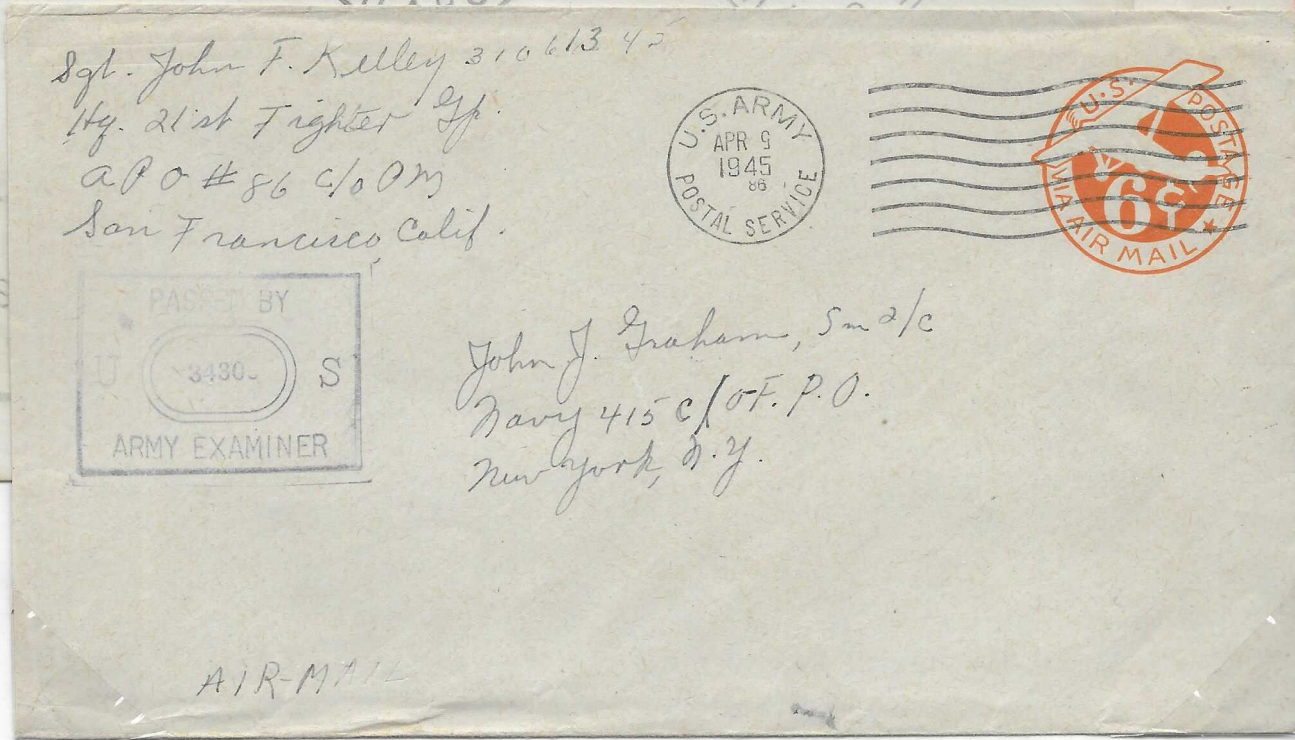 Sgt. John F. Kelley 31061345
Hq. 21st Fighter Gp.
APO # 86 c/o PM
San Francisco, Calif.
U.S. ARMY
APR 9
1945
86
POSTAL SERVICE
U.S. POSTAGE
6¢
VIA AIR MAIL
PASSED BY
U S
ARMY EXAMINER
John J. Graham, Sm 2/c
Navy 415 c/o F.P.O.
New York, N.Y.
AIR-MAIL